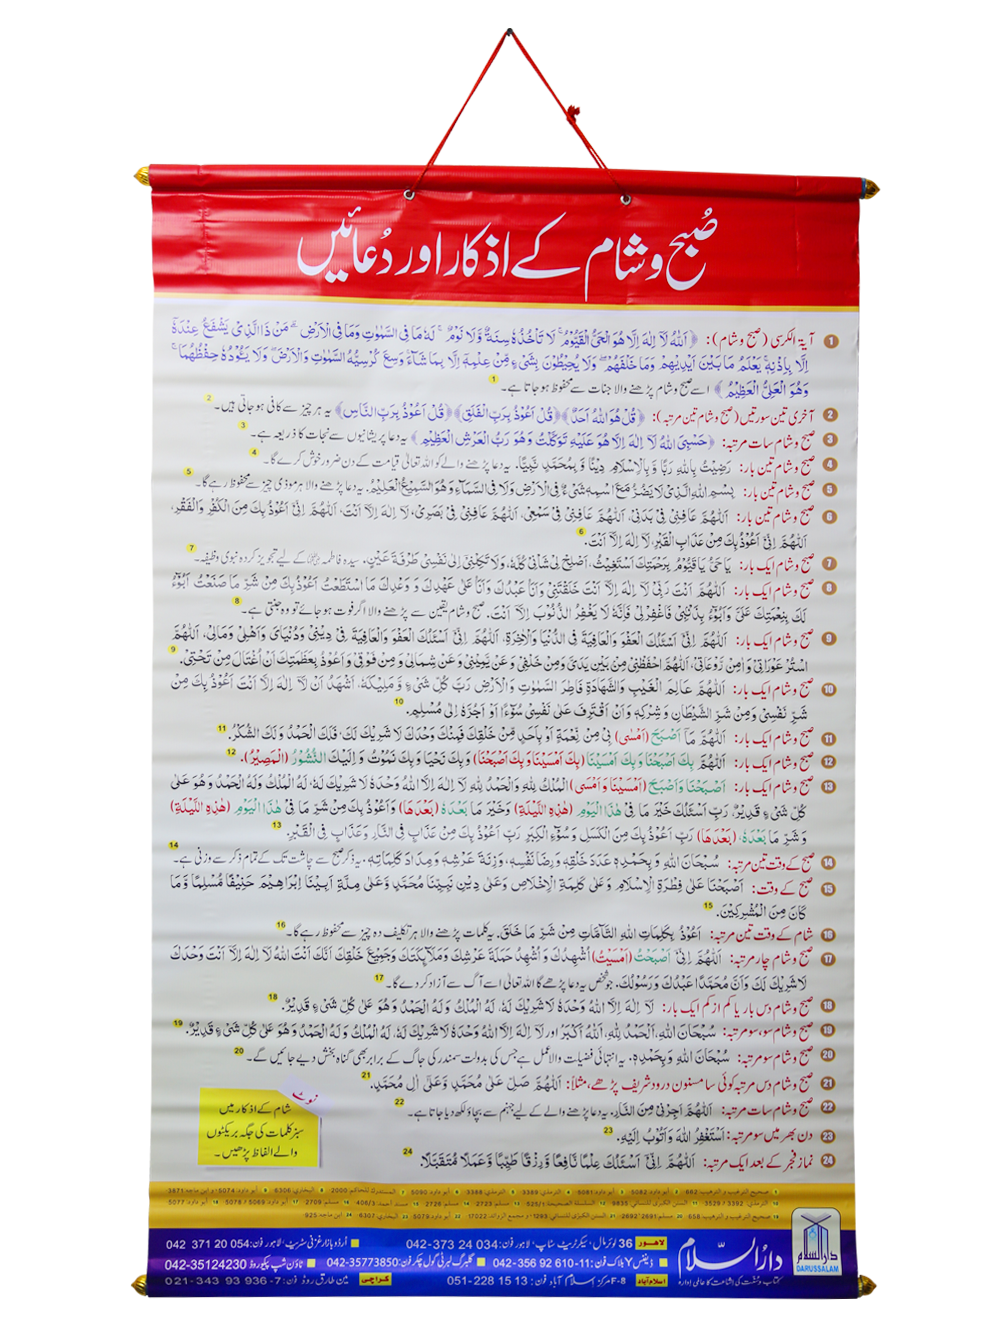 صُبح و شام کے اذکار اور دُعائیں
1 آیۃ الکرسی (صبح و شام): ﴿اَللّٰهُ لَآ اِلٰهَ اِلَّا هُوَ الْحَيُّ الْقَيُّوْمُ لَا تَاْخُذُهٗ سِنَةٌ وَّلَا نَوْمٌ لَهٗ مَا فِي السَّمٰوٰتِ وَمَا فِي الْاَرْضِ مَنْ ذَا الَّذِيْ يَشْفَعُ عِنْدَهٗٓ
اِلَّا بِاِذْنِهٖ يَعْلَمُ مَا بَيْنَ اَيْدِيْهِمْ وَمَا خَلْفَهُمْ وَلَا يُحِيْطُوْنَ بِشَيْءٍ مِّنْ عِلْمِهٖٓ اِلَّا بِمَا شَآءَ وَسِعَ كُرْسِيُّهُ السَّمٰوٰتِ وَالْاَرْضَ وَلَا يَئُوْدُهٗ حِفْظُهُمَا
وَهُوَ الْعَلِيُّ الْعَظِيْمُ﴾ اسے صبح و شام پڑھنے والا جنات سے محفوظ ہو جاتا ہے۔ 1
2 آخری تین سورتیں (صبح و شام تین مرتبہ): ﴿قُلْ هُوَ اللّٰهُ اَحَدٌ﴾ ﴿قُلْ اَعُوْذُ بِرَبِّ الْفَلَقِ﴾ ﴿قُلْ اَعُوْذُ بِرَبِّ النَّاسِ﴾ یہ ہر چیز سے کافی ہو جاتی ہیں۔ 2
3 صبح و شام سات مرتبہ: ﴿حَسْبِيَ اللّٰهُ لَآ اِلٰهَ اِلَّا هُوَ عَلَيْهِ تَوَكَّلْتُ وَهُوَ رَبُّ الْعَرْشِ الْعَظِيْمِ﴾ یہ دعا پریشانیوں سے نجات کا ذریعہ ہے۔ 3
4 صبح و شام تین بار: رَضِيْتُ بِاللّٰهِ رَبًّا وَّ بِالْاِسْلَامِ دِيْنًا وَّ بِمُحَمَّدٍ نَّبِيًّا. یہ دعا پڑھنے والے کو اللہ تعالیٰ قیامت کے دن ضرور خوش کرے گا۔ 4
5 صبح و شام تین بار: بِسْمِ اللّٰهِ الَّذِيْ لَا يَضُرُّ مَعَ اسْمِهٖ شَيْءٌ فِي الْاَرْضِ وَلَا فِي السَّمَآءِ وَهُوَ السَّمِيْعُ الْعَلِيْمُ. یہ دعا پڑھنے والا ہر موذی چیز سے محفوظ رہے گا۔ 5
6 صبح و شام تین بار: اَللّٰهُمَّ عَافِنِيْ فِيْ بَدَنِيْ، اَللّٰهُمَّ عَافِنِيْ فِيْ سَمْعِيْ، اَللّٰهُمَّ عَافِنِيْ فِيْ بَصَرِيْ، لَا اِلٰهَ اِلَّا اَنْتَ، اَللّٰهُمَّ اِنِّيْ اَعُوْذُ بِكَ مِنَ الْكُفْرِ وَالْفَقْرِ،
اَللّٰهُمَّ اِنِّيْ اَعُوْذُ بِكَ مِنْ عَذَابِ الْقَبْرِ، لَا اِلٰهَ اِلَّا اَنْتَ. 6
7 صبح و شام ایک بار: يَا حَيُّ يَا قَيُّوْمُ بِرَحْمَتِكَ اَسْتَغِيْثُ، اَصْلِحْ لِيْ شَأْنِيْ كُلَّهٗ، وَلَا تَكِلْنِيْ اِلٰى نَفْسِيْ طَرْفَةَ عَيْنٍ، سیدہ فاطمہ کے لیے تجویز کردہ نبوی وظیفہ۔ 7
8 صبح و شام ایک بار: اَللّٰهُمَّ اَنْتَ رَبِّيْ لَا اِلٰهَ اِلَّا اَنْتَ خَلَقْتَنِيْ وَاَنَا عَبْدُكَ وَاَنَا عَلٰى عَهْدِكَ وَ وَعْدِكَ مَا اسْتَطَعْتُ اَعُوْذُ بِكَ مِنْ شَرِّ مَا صَنَعْتُ اَبُوْءُ
لَكَ بِنِعْمَتِكَ عَلَيَّ وَ اَبُوْءُ بِذَنْبِيْ فَاغْفِرْلِيْ فَاِنَّهٗ لَا يَغْفِرُ الذُّنُوْبَ اِلَّا اَنْتَ. صبح و شام یقین سے پڑھنے والا اگر فوت ہو جائے تو وہ جنتی ہے۔ 8
9 صبح و شام ایک بار: اَللّٰهُمَّ اِنِّيْ اَسْئَلُكَ الْعَفْوَ وَالْعَافِيَةَ فِي الدُّنْيَا وَالْاٰخِرَةِ، اَللّٰهُمَّ اِنِّيْ اَسْئَلُكَ الْعَفْوَ وَالْعَافِيَةَ فِيْ دِيْنِيْ وَدُنْيَايَ وَاَهْلِيْ وَمَالِيْ، اَللّٰهُمَّ
اسْتُرْ عَوْرَاتِيْ وَاٰمِنْ رَوْعَاتِيْ، اَللّٰهُمَّ احْفَظْنِيْ مِنْ بَيْنِ يَدَيَّ وَمِنْ خَلْفِيْ وَعَنْ يَّمِيْنِيْ وَعَنْ شِمَالِيْ وَمِنْ فَوْقِيْ وَاَعُوْذُ بِعَظَمَتِكَ اَنْ اُغْتَالَ مِنْ تَحْتِيْ. 9
10 صبح و شام ایک بار: اَللّٰهُمَّ عَالِمَ الْغَيْبِ وَالشَّهَادَةِ فَاطِرَ السَّمٰوٰتِ وَالْاَرْضِ رَبَّ كُلِّ شَيْءٍ وَّمَلِيْكَهٗ، اَشْهَدُ اَنْ لَّا اِلٰهَ اِلَّا اَنْتَ اَعُوْذُ بِكَ مِنْ
شَرِّ نَفْسِيْ وَمِنْ شَرِّ الشَّيْطَانِ وَشِرْكِهٖ وَاَنْ اَقْتَرِفَ عَلٰى نَفْسِيْ سُوْءًا اَوْ اَجُرَّهٗ اِلٰى مُسْلِمٍ. 10
11 صبح و شام ایک بار: اَللّٰهُمَّ مَا اَصْبَحَ (اَمْسٰى) بِيْ مِنْ نِّعْمَةٍ اَوْ بِاَحَدٍ مِّنْ خَلْقِكَ فَمِنْكَ وَحْدَكَ لَا شَرِيْكَ لَكَ، فَلَكَ الْحَمْدُ وَلَكَ الشُّكْرُ. 11
12 صبح و شام ایک بار: اَللّٰهُمَّ بِكَ اَصْبَحْنَا وَبِكَ اَمْسَيْنَا (بِكَ اَمْسَيْنَا وَبِكَ اَصْبَحْنَا) وَبِكَ نَحْيَا وَبِكَ نَمُوْتُ وَ اِلَيْكَ النُّشُوْرُ (الْمَصِيْرُ). 12
13 صبح و شام ایک بار: اَصْبَحْنَا وَاَصْبَحَ (اَمْسَيْنَا وَ اَمْسَى) الْمُلْكُ لِلّٰهِ وَالْحَمْدُ لِلّٰهِ لَا اِلٰهَ اِلَّا اللّٰهُ وَحْدَهٗ لَا شَرِيْكَ لَهٗ، لَهُ الْمُلْكُ وَلَهُ الْحَمْدُ وَهُوَ عَلٰى
كُلِّ شَيْءٍ قَدِيْرٌ، رَبِّ اَسْئَلُكَ خَيْرَ مَا فِيْ هٰذَا الْيَوْمِ (هٰذِهِ اللَّيْلَةِ) وَخَيْرَ مَا بَعْدَهٗ (بَعْدَهَا) وَاَعُوْذُ بِكَ مِنْ شَرِّ مَا فِيْ هٰذَا الْيَوْمِ (هٰذِهِ اللَّيْلَةِ)
وَ شَرِّ مَا بَعْدَهٗ، (بَعْدَهَا) رَبِّ اَعُوْذُ بِكَ مِنَ الْكَسَلِ وَ سُوْءِ الْكِبَرِ رَبِّ اَعُوْذُ بِكَ مِنْ عَذَابٍ فِي النَّارِ وَعَذَابٍ فِي الْقَبْرِ. 13
14 صبح کے وقت تین مرتبہ: سُبْحَانَ اللّٰهِ وَ بِحَمْدِهٖ عَدَدَ خَلْقِهٖ وَ رِضَا نَفْسِهٖ، وَزِنَةَ عَرْشِهٖ وَ مِدَادَ كَلِمَاتِهٖ. یہ ذکر صبح سے چاشت تک کے تمام ذکر سے وزنی ہے۔ 14
15 صبح کے وقت: اَصْبَحْنَا عَلٰى فِطْرَةِ الْاِسْلَامِ وَ عَلٰى كَلِمَةِ الْاِخْلَاصِ وَعَلٰى دِيْنِ نَبِيِّنَا مُحَمَّدٍ وَّعَلٰى مِلَّةِ اَبِيْنَا اِبْرَاهِيْمَ حَنِيْفًا مُّسْلِمًا وَّمَا
كَانَ مِنَ الْمُشْرِكِيْنَ. 15
16 شام کے وقت تین مرتبہ: اَعُوْذُ بِكَلِمَاتِ اللّٰهِ التَّآمَّاتِ مِنْ شَرِّ مَا خَلَقَ. یہ کلمات پڑھنے والا ہر تکلیف دہ چیز سے محفوظ رہے گا۔ 16
17 صبح و شام چار مرتبہ: اَللّٰهُمَّ اِنِّيْ اَصْبَحْتُ (اَمْسَيْتُ) اُشْهِدُكَ وَ اُشْهِدُ حَمَلَةَ عَرْشِكَ وَمَلَآئِكَتَكَ وَجَمِيْعَ خَلْقِكَ اَنَّكَ اَنْتَ اللّٰهُ لَا اِلٰهَ اِلَّا اَنْتَ وَحْدَكَ
لَا شَرِيْكَ لَكَ وَاَنَّ مُحَمَّدًا عَبْدُكَ وَ رَسُوْلُكَ. جو شخص یہ دعا پڑھے گا اللہ تعالیٰ اسے آگ سے آزاد کر دے گا۔ 17
18 صبح و شام دس بار یا کم از کم ایک بار: لَا اِلٰهَ اِلَّا اللّٰهُ وَحْدَهٗ لَا شَرِيْكَ لَهٗ، لَهُ الْمُلْكُ وَ لَهُ الْحَمْدُ وَ هُوَ عَلٰى كُلِّ شَيْءٍ قَدِيْرٌ. 18
19 صبح و شام سو، سو مرتبہ: سُبْحَانَ اللّٰهِ، اَلْحَمْدُ لِلّٰهِ، اَللّٰهُ اَكْبَرُ اور لَا اِلٰهَ اِلَّا اللّٰهُ وَحْدَهٗ لَا شَرِيْكَ لَهٗ، لَهُ الْمُلْكُ وَ لَهُ الْحَمْدُ وَ هُوَ عَلٰى كُلِّ شَيْءٍ قَدِيْرٌ. 19
20 صبح و شام سو مرتبہ: سُبْحَانَ اللّٰهِ وَبِحَمْدِهٖ. یہ انتہائی فضیلت والا عمل ہے جس کی بدولت سمندر کی جھاگ کے برابر بھی گناہ بخش دیے جائیں گے۔ 20
21 صبح و شام دس مرتبہ کوئی سا مسنون درود شریف پڑھے، مثلاً: اَللّٰهُمَّ صَلِّ عَلٰى مُحَمَّدٍ وَّعَلٰى اٰلِ مُحَمَّدٍ. 21
22 صبح و شام سات مرتبہ: اَللّٰهُمَّ اَجِرْنِيْ مِنَ النَّارِ. یہ دعا پڑھنے والے کے لیے جہنم سے بچاؤ لکھ دیا جاتا ہے۔ 22
23 دن بھر میں سو مرتبہ: اَسْتَغْفِرُ اللّٰهَ وَ اَتُوْبُ اِلَيْهِ. 23
24 نماز فجر کے بعد ایک مرتبہ: اَللّٰهُمَّ اِنِّيْ اَسْئَلُكَ عِلْمًا نَّافِعًا وَّ رِزْقًا طَيِّبًا وَّ عَمَلًا مُّتَقَبَّلًا. 24
نوٹ
شام کے اذکار میں
سبز کلمات کی جگہ بریکٹوں
والے الفاظ پڑھیں۔
دارُالسّلام
کتاب و سنت کی اشاعت کا عالمی ادارہ
دارالسلام
DARUSSALAM
لاہور 36 لوئر مال، سیکرٹریٹ سٹاپ، لاہور فون: 042-373 24 034 اُردو بازار غزنی سٹریٹ، لاہور فون: 042 371 20 054
ڈیفنس Y بلاک فون: 11-610 92 356-042 گلبرگ لبرٹی گول چکر فون: 042-35773850 ٹاؤن شپ پیکیو روڈ 042-35124230
اسلام آباد F-8 مرکز اسلام آباد فون: 13 15 228-051 کراچی مین طارق روڈ فون: 7-936 93 343-021